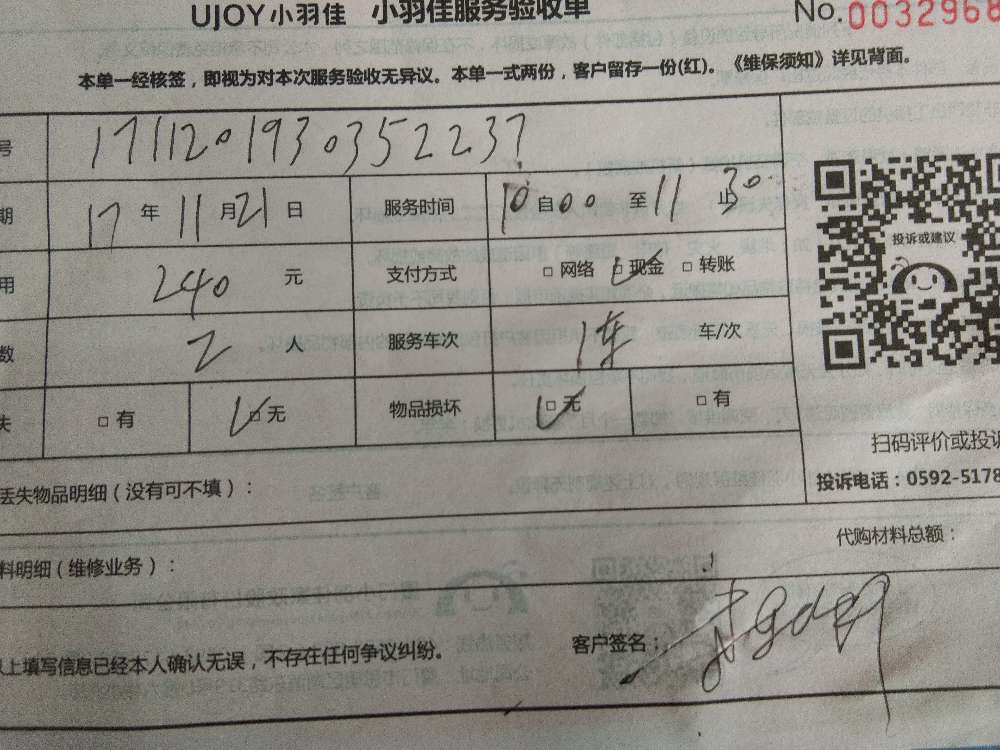 UJOY小羽佳 小羽佳服务验收单 No.0032968
本单一经核签，即视为对本次服务验收无异议。本单一式两份，客户留存一份(红)。《维保须知》详见背面。
号 1711201930352237
期 17 年 11 月 21 日 服务时间 10 自 00 至 11 止 30
用 240 元 支付方式 □ 网络 □ 现金 □ 转账
数 2 人 服务车次 1车 车/次
失 □ 有 □ 无 物品损坏 □ 无 □ 有
投诉或建议
扫码评价或投诉
投诉电话：0592-5178
丢失物品明细（没有可不填）：
代购材料总额：
料明细（维修业务）：
以上填写信息已经本人确认无误，不存在任何争议纠纷。 客户签名：